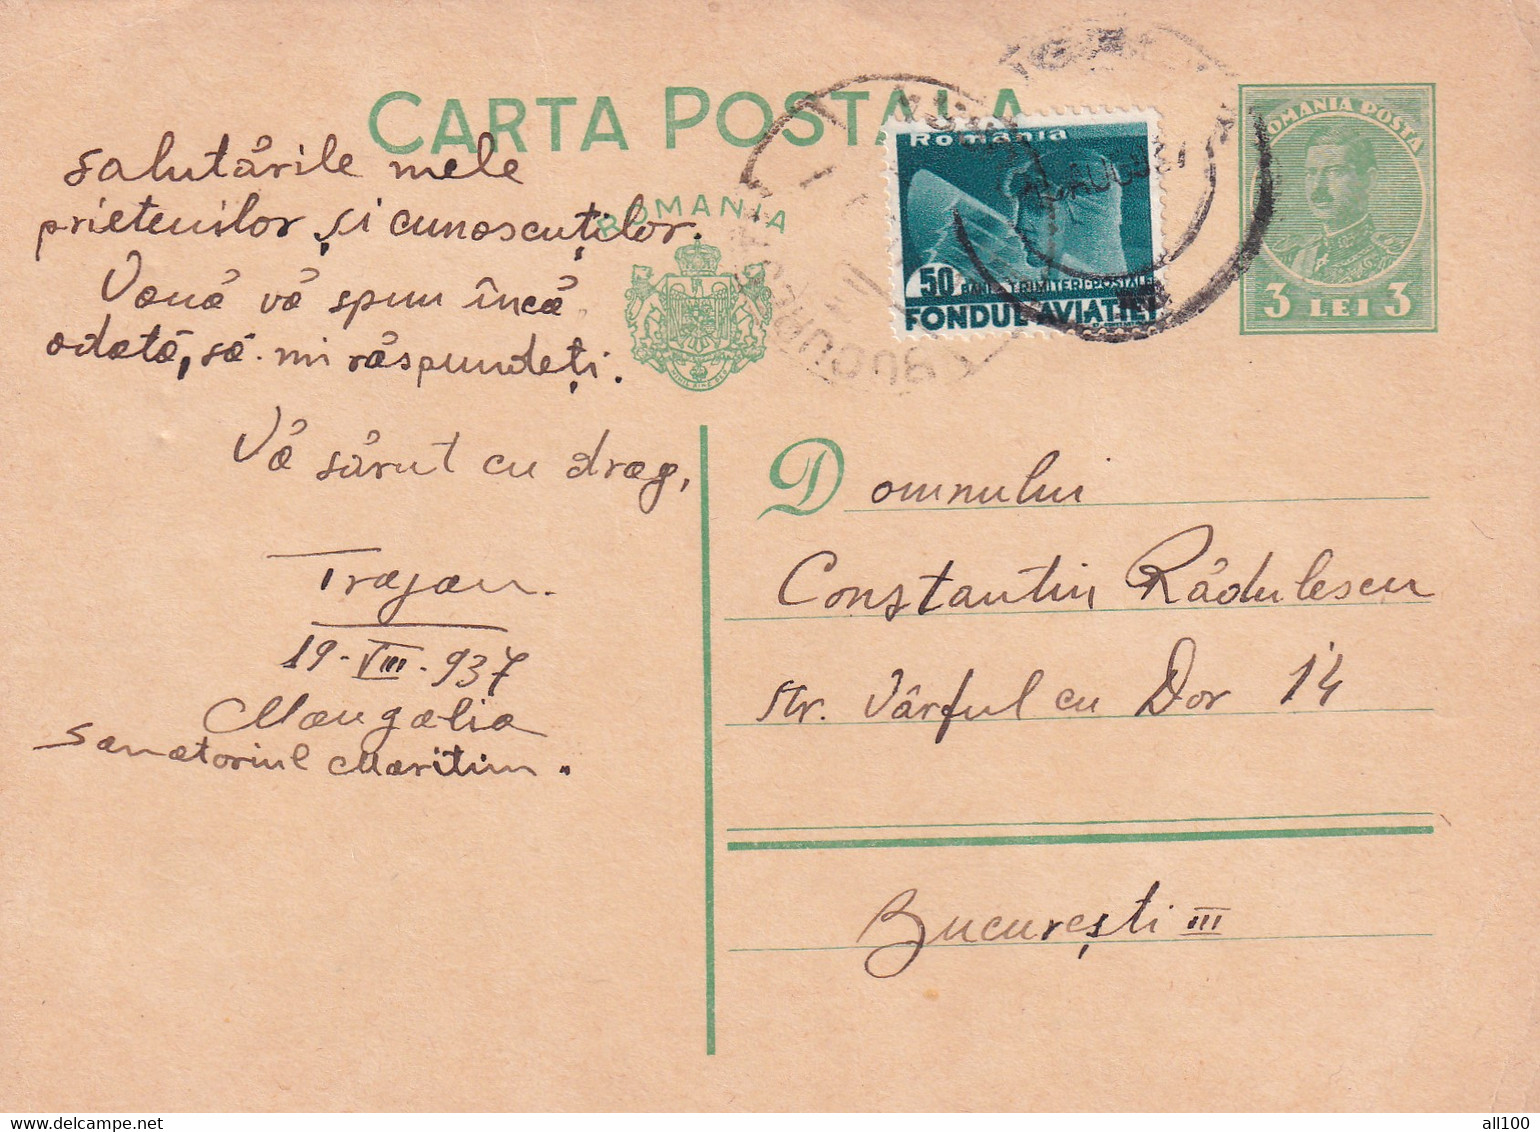 CARTA POSTALA
ROMANIA
NIHIL SINE DEO
România
50 BANI TRIMITERI POSTALE
FONDUL AVIAȚIEI
AUG 937
BUCUREST
ROMANIA POSTA
3 LEI 3
salutările mele
prietenilor și cunoscuților.
Vouă vă spun încă
odată, să-mi răspundeți.
Vă sărut cu drag,
Trajan.
19-VIII-937
Mangalia
Sanatoriul Maritim.
Domnului
Constantin Rădulescu
str. Vârful cu Dor 14
București III
all100